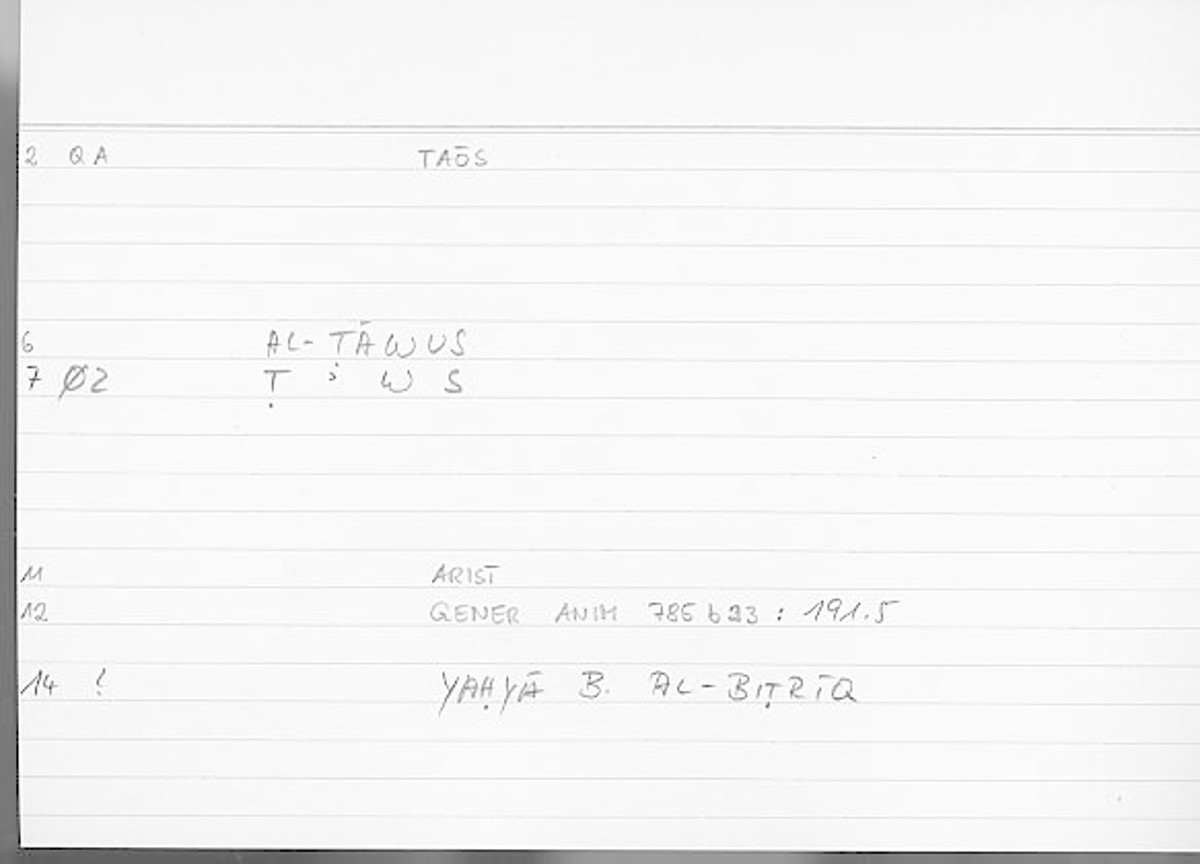 2 QA TAŌS
6 AL-ṬĀWUS
7 Ø2 Ṭ ʾ W S
11 ARIST
12 GENER ANIM 785 b 23 : 191.5
14 ! YAḤYĀ B. AL-BIṬRĪQ